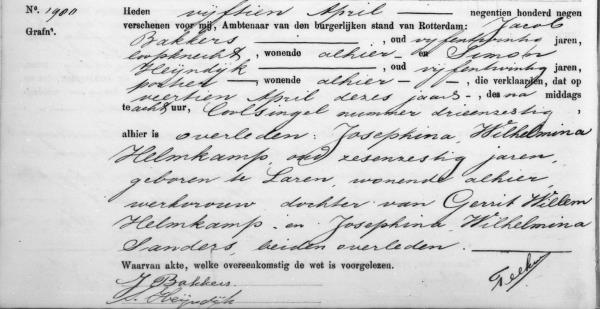 No. 1900
Grafnr.
Heden vijftien April negentien honderd negen
verschenen voor mij, Ambtenaar van den burgerlijken stand van Rotterdam: Jacob
Bakkers, oud vijfentwintig jaren,
loopknecht, wonende alhier en Simon
Heijndijk, oud vijfentwintig jaren,
portier, wonende alhier, die verklaarden, dat op
veertien April dezes jaars, des na middags
te acht uur, Coolsingel nummer drieenzestig,
alhier is overleden: Josephina Wilhelmina
Helmkamp, oud zesenzestig jaren,
geboren te Laren, wonende alhier,
werkvrouw dochter van Gerrit Willem
Helmkamp en Josephina Wilhelmina
Sanders, beiden overleden.
Waarvan akte, welke overeenkomstig de wet is voorgelezen.
J Bakkers.
S. Heijndijk